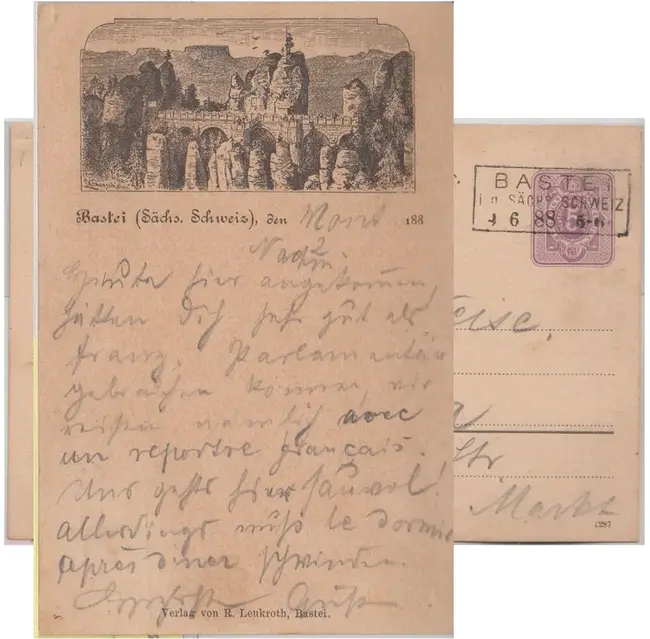 Bastei (Sächs. Schweiz), den Mont 188
Nachm.
Heute hier angekommen,
hätten Dich sehr gut als
franz. Parlamentär
gebrauchen können, wir
reisen nämlich avec
un reportre français.
Uns gehts hier sauwol!
Allerdings muß le dormir
après diner schwinden.
Verlag von R. Leukroth, Bastei.
BASTEI
i.d. SÄCHS. SCHWEIZ
4 6 88 5-6
5
eise,
a
Str
Markt
1287